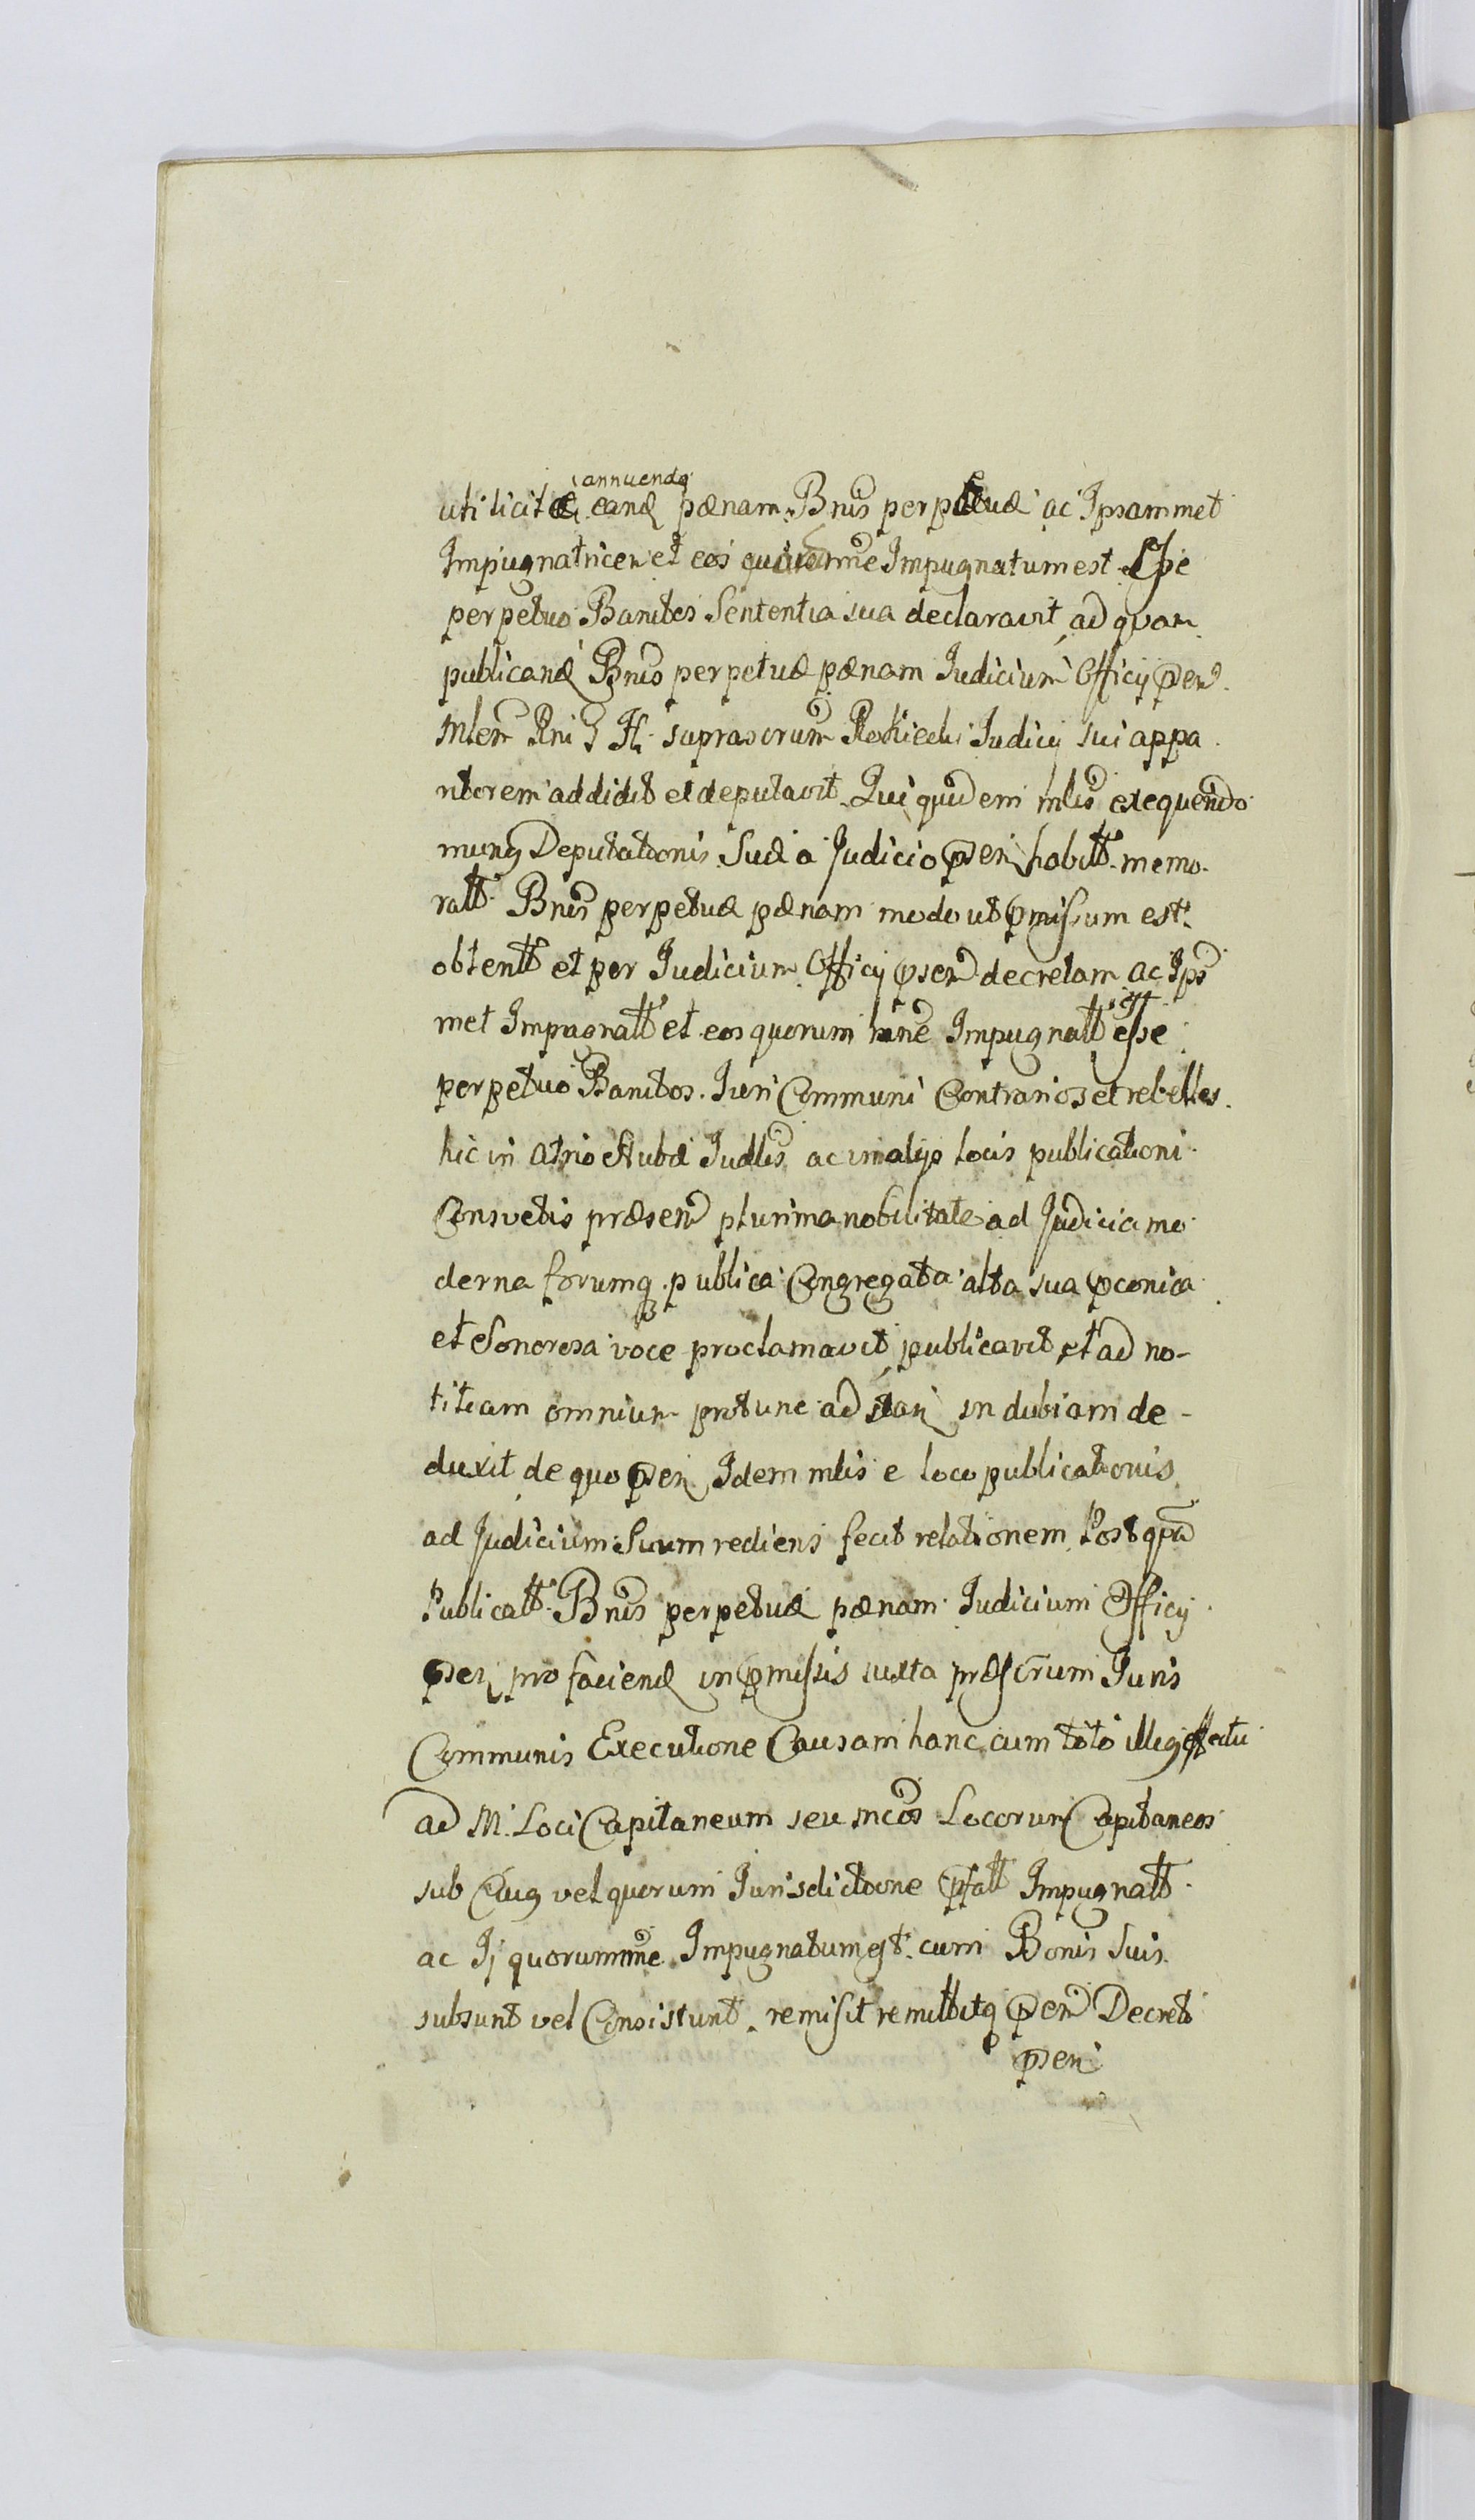 annuendo
uti licitæ eand pænam Bnis perpetuæ ac Ipsammet
Impugnatricem et eos quorum nne Impugnatum est Esse
perpetuo Banitos Sententia sua declaravit, ad quam
publicand Bnis perpetuæ pænam Iudicium Officij psen
Mlem Rnis suprascrum Iudicij sui appa
ritorem addidit et deputavit. Qui quidem mlis exequendo
munq Deputationis Suæ a Judicio psen habitt. memo-
ratt. Bnis perpetuæ pænam modo ut pmissum est
obtentt et per Iudicium Officij psen decretam ac Ips
met Impugnatt et eos quorum nne Impugnatt est esse
perpetuo Banitos. Juri Communi Contrarios et rebelles.
hic in atrio Stubæ Judlis ac in alijs locis publicationi
Consvetis præsen plurima nobilitate ad Judicia mo
derna forumq publica Congregata alta sua pconica
et Sonorosa voce proclamavit publicavit et ad no-
titiam omnium protunc ad stan in dubiam de-
duxit de quo psen Idem mlis e loco publicationis
ad Judicium Suum rediens fecit relationem Post qm
Publicatt. Bnis perpetuæ pænam Iudicium Officij
psen pro faciend in pmissis iuxta præscrum Iuris
Communis Executione Causam hanc cum toto illiq effectu
ad M. Loci Capitaneum seu mcos Locorum Capitaneos
sub Cuiq vel quorum Iurisdictione pfatt Impugnatt
ac Ij quorum nne Impugnatum est cum Bonis Suis
subsunt vel Consistunt. remisit remittitq psen Decret
psen